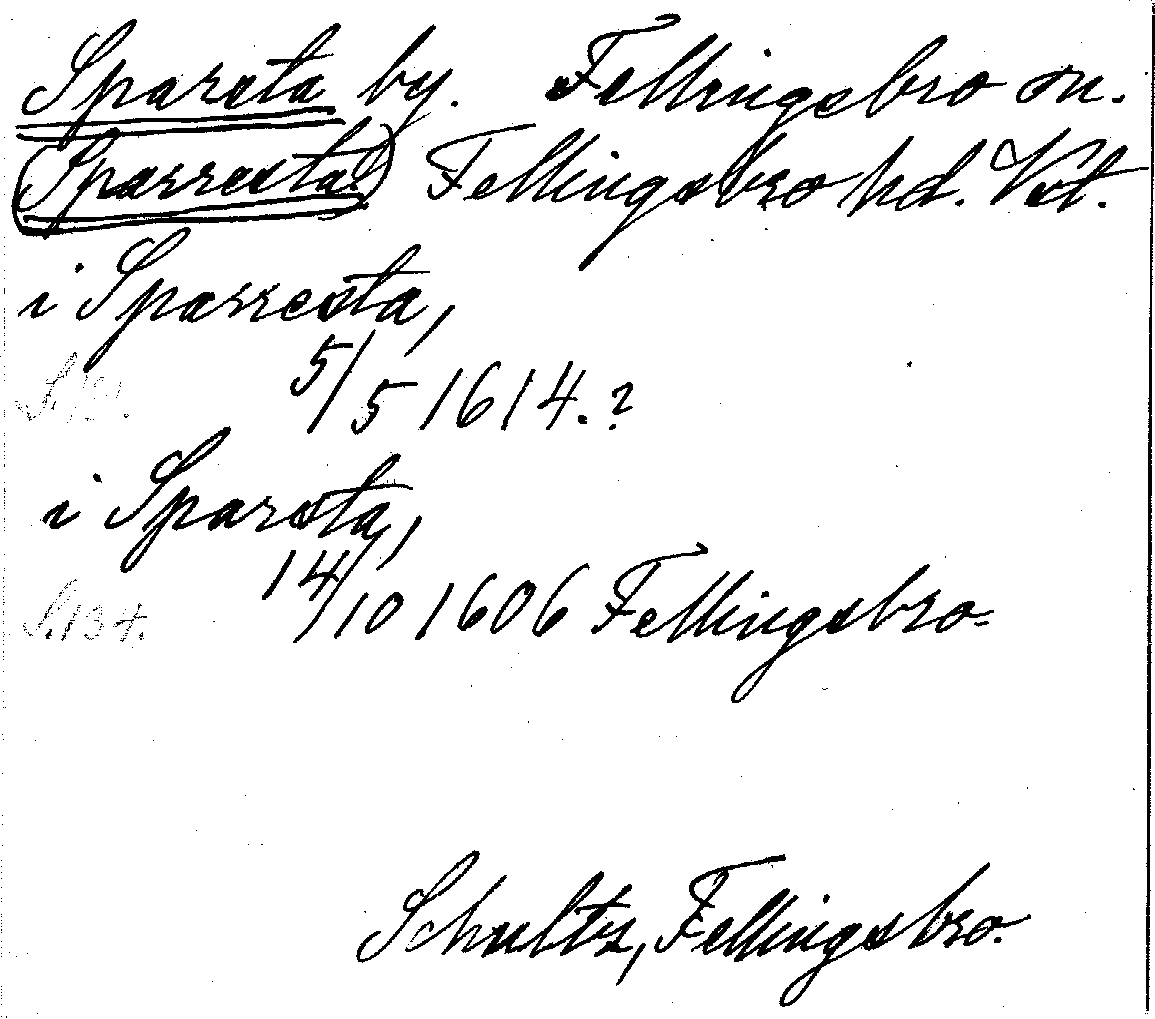 Sparsta by. Fellingsbro sn.
(Sparresta!) Fellingsbro hd. Vst.
i Sparresta,
5/5 1614.?
i Sparsta,
S. 134. 14/10 1606 Fellingsbro.
Schultz, Fellingsbro.